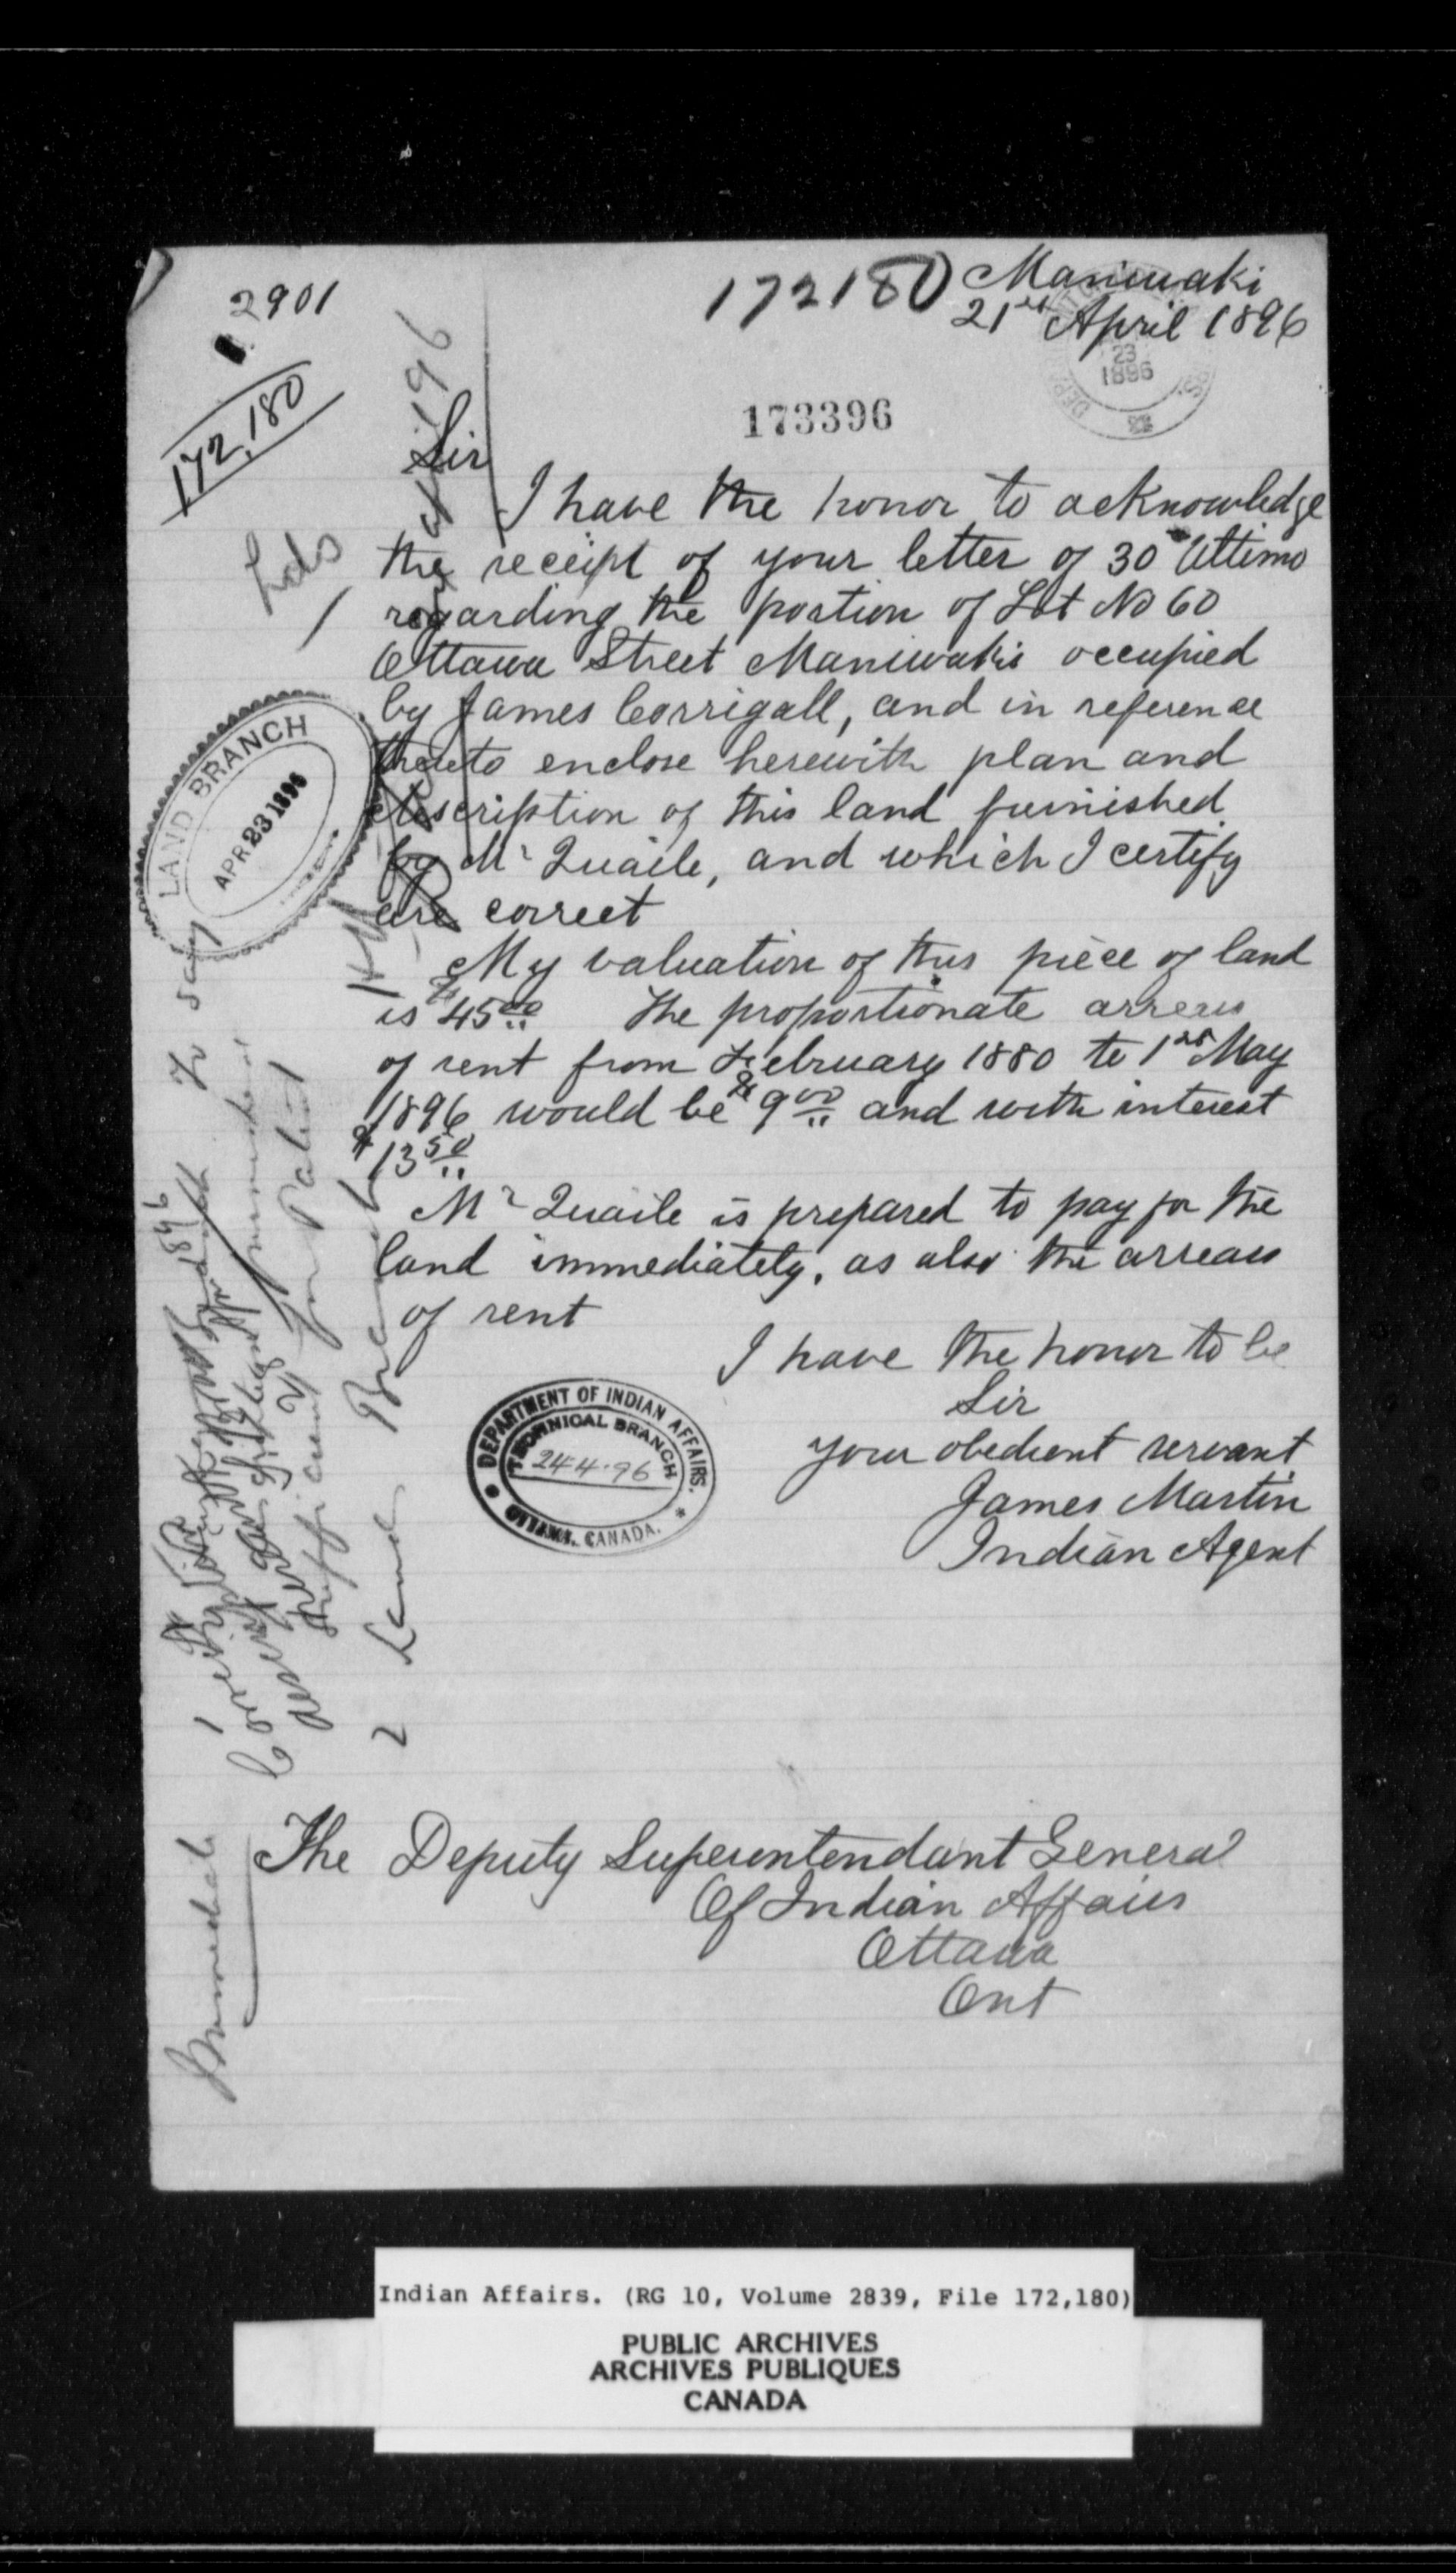 2901
172180
Maniwaki
21st April 1896
23
1896
172,180
173396
Lds
Sir
I have the honor to acknowledge
the receipt of your letter of 30 Ultimo
regarding the portion of Lot No 60
Ottawa Street Maniwaki occupied
by James Corrigall, and in reference
thereto enclose herewith plan and
description of this land furnished
by Mr Quaile, and which I certify
are correct
My valuation of this piece of land
is $45.00 The proportionate arrears
of rent from February 1880 to 1st May
1896 would be $9.00 and with interest
$13.50
Mr Quaile is prepared to pay for the
land immediately, as also the arrears
of rent
I have the honor to be
Sir
your obedient servant
James Martin
Indian Agent
LAND BRANCH
APR 23 1896
DEPARTMENT OF INDIAN AFFAIRS.
TECHNICAL BRANCH
24.4.96
OTTAWA, CANADA.
to say
for Patent
2 Land Branch
Immediate
The Deputy Superintendant General
Of Indian Affairs
Ottawa
Ont
Indian Affairs. (RG 10, Volume 2839, File 172,180)
PUBLIC ARCHIVES
ARCHIVES PUBLIQUES
CANADA